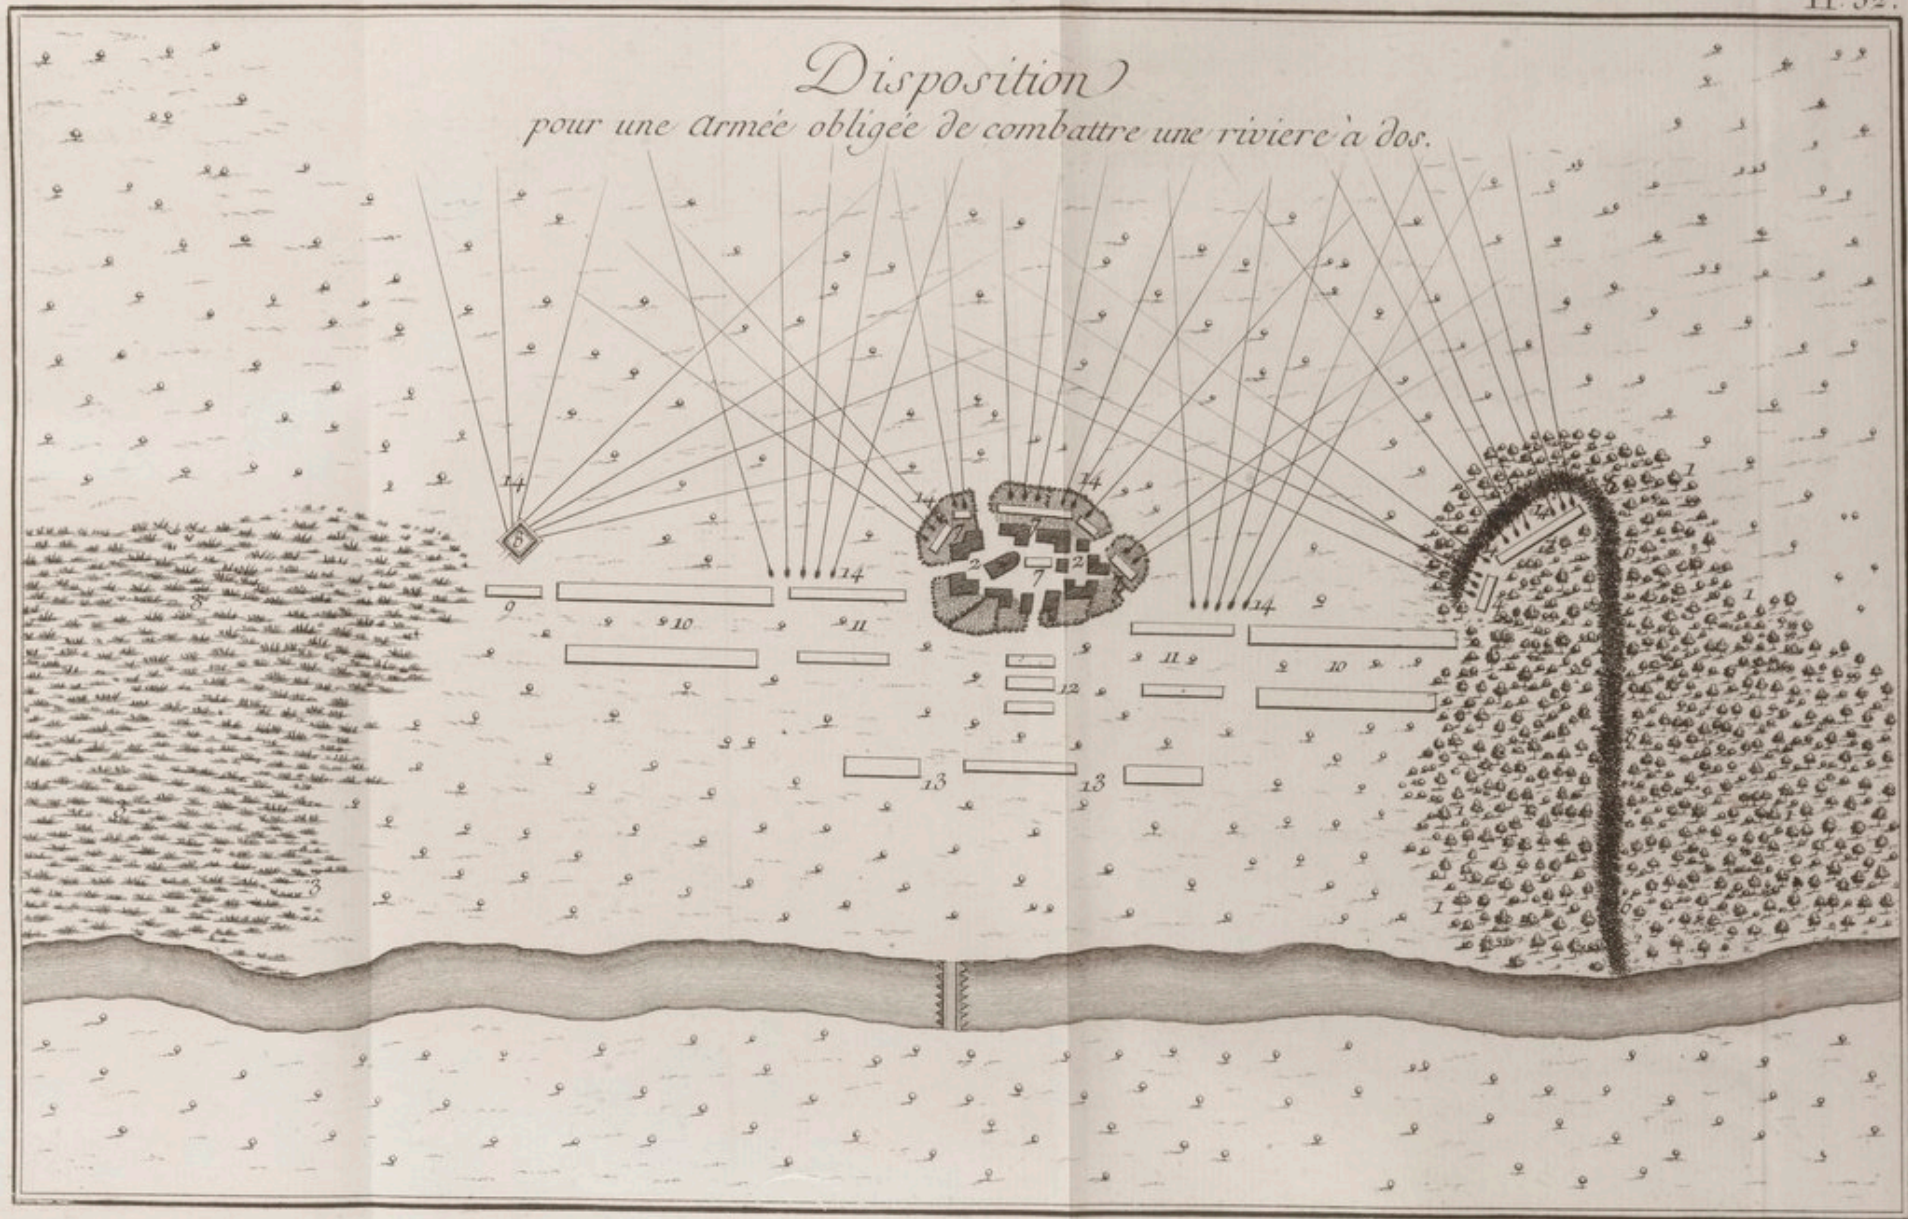 Disposition
pour une Armée obligée de combattre une riviere à dos.
14
14
14
1
14
8
7
2
2
7
14
3
14
4
1
9
10
11
11
10
12
13
13
3
3
1
1